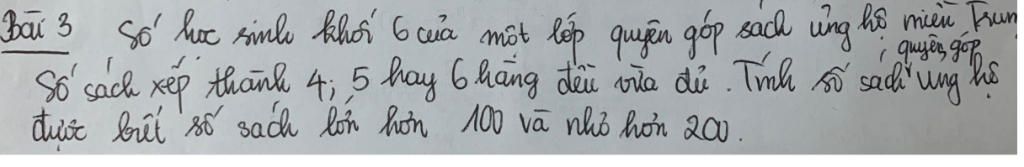 Bài 3 Số học sinh khối 6 của một lớp quyên góp sách ủng hộ miền Trun
quyên góp
Số sách xếp thành 4; 5 hay 6 hàng đều vừa đủ. Tính số sách ủng hộ
được biết số sách lớn hơn 100 và nhỏ hơn 200.